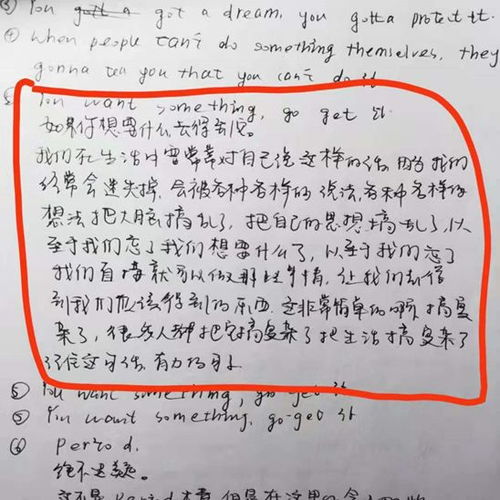 ③ You gott a got a dream, you gotta protect it.
④ when people can't do something themselves, they
gonna tell you that you can't do it
⑤ You want something, go get it.
如果你想要什么去得到它。
我们在生活中要常常对自己说这样的话,因为我们
经常会迷失掉,会被各种各样的说法,各种各样的
想法把大脑搞乱了,把自己的思想搞乱了,以
至于我们忘了我们想要什么了,以至于我们忘了
我们直接就可以做那件事情,让我们去得
到我们应该得到的东西,这非常简单的啊,搞复
杂了,很多人都把它搞复杂了把生活搞复杂了
记住这句话,有力的句子
⑤ You want something, go get it
⑤ You want something, go get it
⑥ Period.
绝不退换。
这不是 Period 本意,但是在这里的